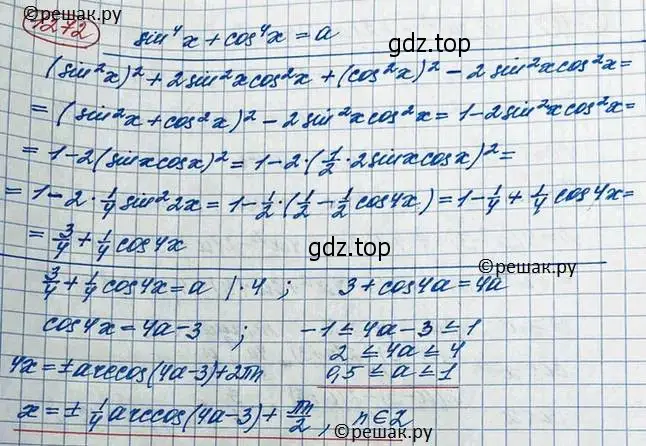 1272
sin⁴x + cos⁴x = a
гдз.top
©решак.ру
(sin²x)² + 2sin²xcos²x + (cos²x)² - 2sin²xcos²x =
= (sin²x + cos²x)² - 2sin²xcos²x = 1 - 2sin²xcos²x =
= 1 - 2(sinxcosx)² = 1 - 2·(1/2·2sinxcosx)² =
= 1 - 2·1/4 sin²2x = 1 - 1/2·(1/2 - 1/2 cos4x) = 1 - 1/4 + 1/4 cos4x =
= 3/4 + 1/4 cos4x
гдз.top
©решак.ру
3/4 + 1/4 cos4x = a |·4 ; 3 + cos4a = 4a
cos4x = 4a - 3 ; -1 ≤ 4a - 3 ≤ 1
2 ≤ 4a ≤ 4
4x = ± arccos(4a-3) + 2πn 0,5 ≤ a ≤ 1
x = ± 1/4 arccos(4a-3) + πn/2, n∈Z
©решак.ру